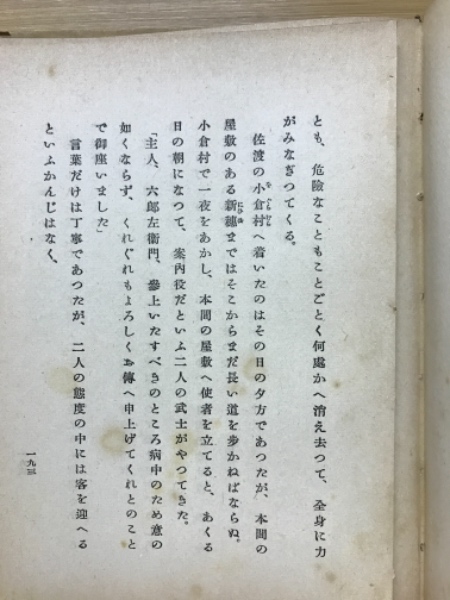 とも、危險なこともことごとく何處かへ消え去つて、全身に力
がみなぎつてくる。
佐渡の小倉村へ着いたのはその日の夕方であつたが、本間の
屋敷のある新穗まではそこからまだ長い道を歩かねばならぬ。
小倉村で一夜をあかし、本間の屋敷へ使者を立てると、あくる
日の朝になつて、案內役だといふ二人の武士がやつてきた。
「主人、六郎左衞門、參上いたすべきのところ病中のため意の
如くならず、くれぐれもよろしくお傳へ申上げてくれとのこと
で御座いました」
言葉だけは丁寧であつたが、二人の態度の中には客を迎へる
といふかんじはなく、
一九三